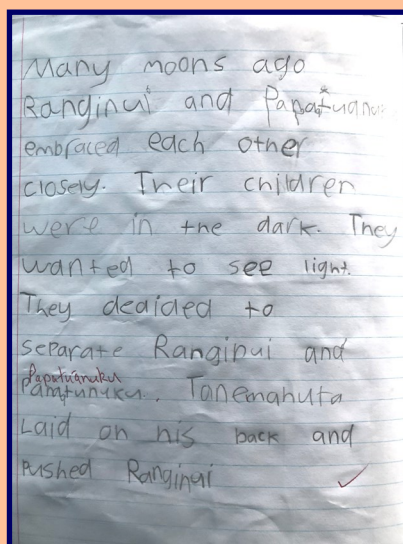 Many moons ago
Ranginui and Papatuanu
embraced each other
closely. Their children
were in the dark. They
wanted to see light.
They dedided to
separate Ranginui and
Papatuanuku
Tanemahuta
Laid on his back and
pushed Ranginui